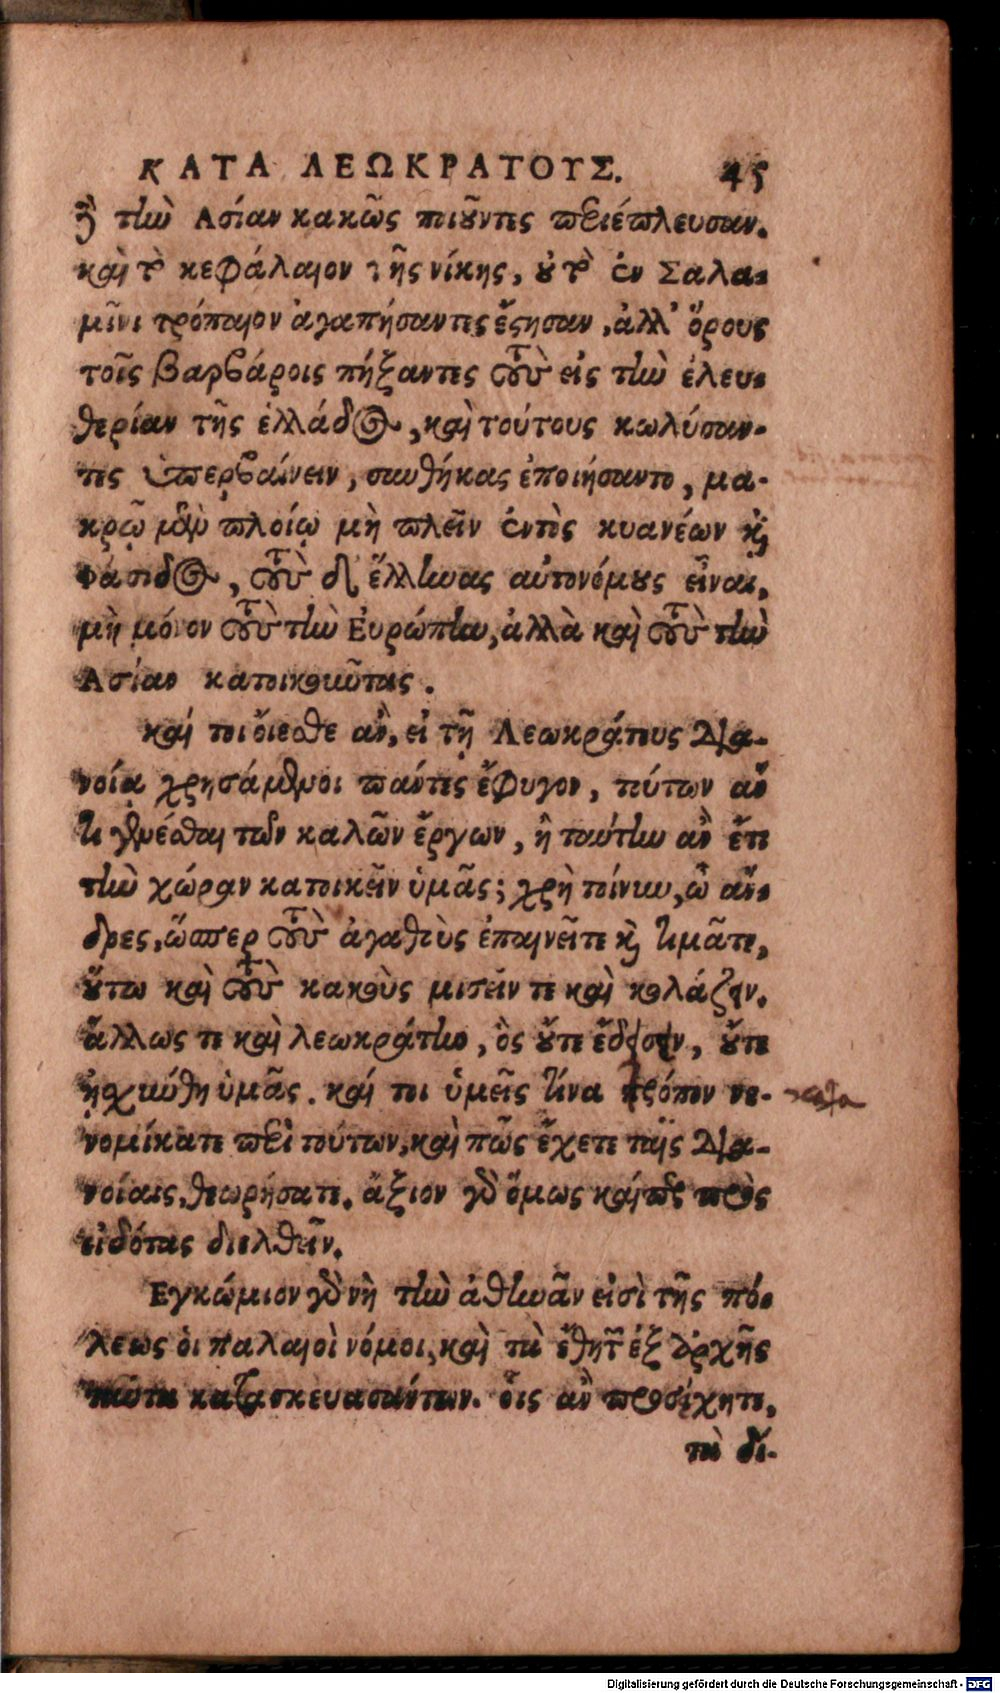 ΚΑΤΑ ΛΕΩΚΡΑΤΟΥΣ. 45
τὴν Ασίαν κακῶς ποιοῦντες περιέπλευσαν.
καὶ τὸ κεφάλαιον τῆς νίκης, οὐ τὸ ἐν Σαλα-
μῖνι τρόπαιον ἀγαπήσαντες ἔστησαν, ἀλλ' ὅρους
τοῖς βαρβάροις πήξαντες τοὺς εἰς τὴν ἐλευ-
θερίαν τῆς ἑλλάδος, καὶ τούτους κωλύσαν-
τες ὑπερβαίνειν, συνθήκας ἐποιήσαντο, μα-
κρῷ μὲν πλοίῳ μὴ πλεῖν ἐντὸς κυανέων καὶ
φάσιδος, τοὺς δὲ ἕλληνας αὐτονόμους εἶναι,
μὴ μόνον τοὺς τὴν Ἐυρώπην, ἀλλὰ καὶ τοὺς τὴν
Ασίαν κατοικοῦντας.
καί τοι οἴεσθε ἂν, εἰ τῇ Λεωκράτους δια-
νοίᾳ χρησάμενοι πάντες ἔφυγον, τούτων ἄν
τι γενέσθαι τῶν καλῶν ἔργων, ἢ ταύτην ἂν ἔτι
τὴν χώραν κατοικεῖν ὑμᾶς; χρὴ τοίνυν, ὦ ἄν-
δρες, ὥσπερ τοὺς ἀγαθοὺς ἐπαινεῖτε καὶ τιμᾶτε,
οὕτω καὶ τοὺς κακοὺς μισεῖν τε καὶ κολάζειν.
ἄλλως τε καὶ λεωκράτην, ὃς οὔτε ἔδεισεν, οὔτε
ᾐσχύνθη ὑμᾶς. καί τοι ὑμεῖς τίνα τρόπον νε-
νομίκατε περὶ τούτων, καὶ πῶς ἔχετε ταῖς δια-
νοίαις, θεωρήσατε. ἄξιον γὰρ ὅμως καί πρὸς
εἰδότας διελθεῖν.
Εγκώμιον γὰρ νὴ τὴν ἀθηνᾶν εἰσὶ τῆς πό-
λεως ὁι παλαιοὶ νόμοι, καὶ τὰ ἔθη τῶν ἐξ ἀρχῆς
ταῦτα κατασκευασάντων. οἷς ἂν προσέχητε,
τὰ δί-